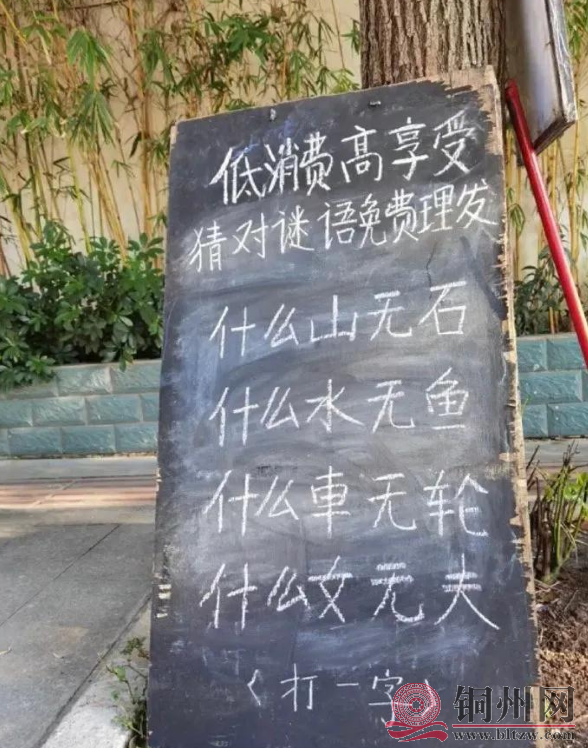 低消费高享受
猜对谜语免费理发
什么山无石
什么水无鱼
什么車无轮
什么女无夫
（打一字）
铜州网
www.bltzw.com